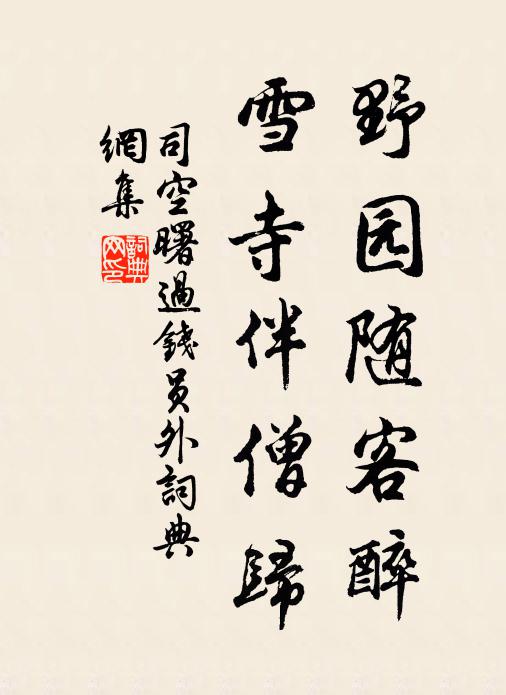 野园随客醉
雪寺伴僧歸
司空曙過錢員外詞典
網集
詞典网印